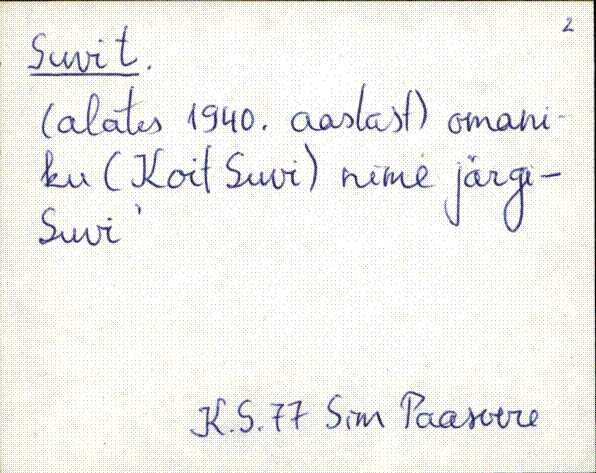 2
Suvi t.
(alates 1940. aastast) omani-
ku (Koit Suvi) nime järgi-
Suvi'
K.S.77 Sim Paasvere